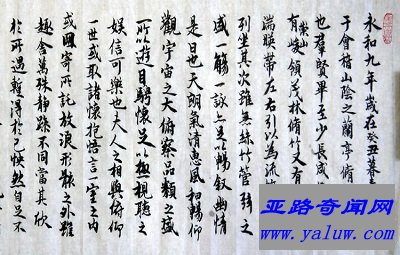 永和九年歲在癸丑暮
于會稽山陰之蘭亭脩
也羣賢畢至少長咸
有崇山峻領茂林脩竹又有
湍暎帶左右引以為流
列坐其次雖無絲竹管弦之
盛一觴一詠亦足以暢叙幽情
是日也天朗氣清惠風和暢仰
觀宇宙之大俯察品類之盛
所以遊目騁懷足以極視聽之
娛信可樂也夫人之相與俯仰
一世或取諸懷抱悟言一室之內
或因寄所託放浪形骸之外雖
趣舍萬殊靜躁不同當其欣
於所遇暫得於己快然自足不
亚路奇闻网
www.yaluw.com